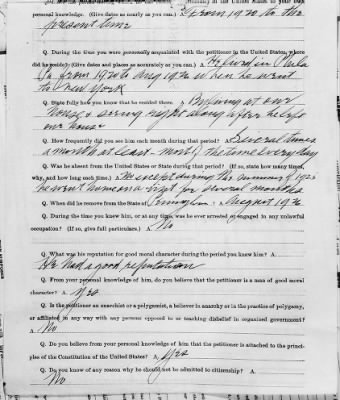 personal knowledge. (Give dates as nearly as you can.) From 1920 to the
present time
Q. During the time you were personally acquainted with the petitioner in the United States, where
did he reside? (Give dates and places as accurately as you can.) He lived in Phila
Pa from 1920 to Aug 1926 when he went
to New York
Q. State fully how you know that he resided there. By living at our
house & seeing right along after he left
our house
Q. How frequently did you see him each month during that period? Several times
a month at least mostly the time every day
Q. Was he absent from the United States or State during that period? (If so, state how many times,
why, and how long each time.) except during the summer of 192
he went home on a visit for several months
Q. When did he remove from the State of August 1926
Q. During the time you knew him, or at any time, was he ever arrested or engaged in any unlawful
occupation? (If so, give full particulars.) A. No
Q. What was his reputation for good moral character during the period you knew him? A.
He had a good reputation
Q. From your personal knowledge of him, do you believe that the petitioner is a man of good moral
character? A. Yes
Q. Is the petitioner an anarchist or a polygamist, a believer in anarchy or in the practice of polygamy,
or affiliated in any way with any persons opposed to or teaching disbelief in organized government?
A. No
Q. Do you believe from your personal knowledge of him that the petitioner is attached to the princi-
ples of the Constitution of the United States? A. Yes
Q. Do you know of any reason why he should not be admitted to citizenship? A.
No